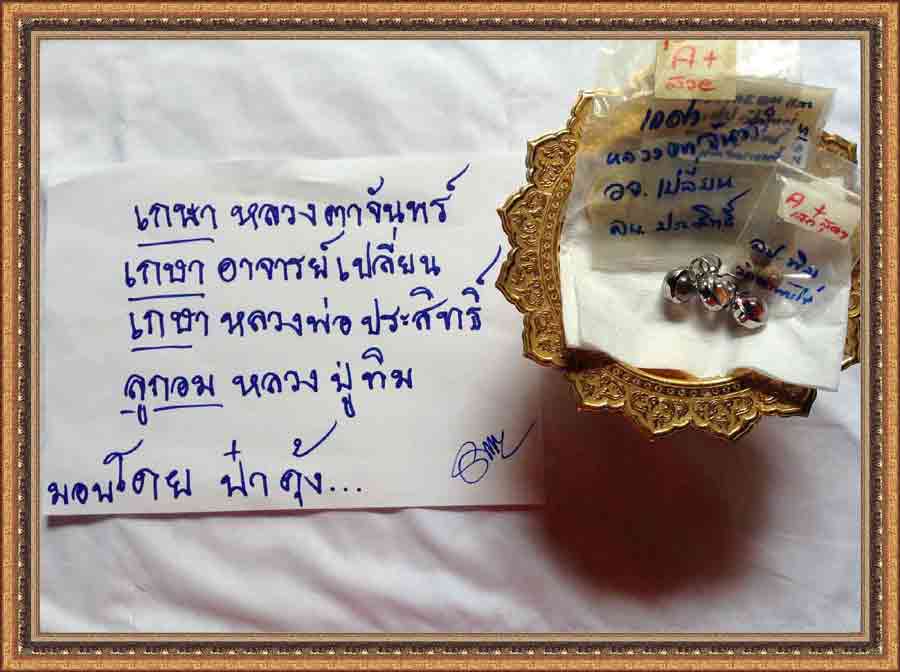 เกษา หลวงตาจันทร์
เกษา อาจารย์เปลี่ยน
เกษา หลวงพ่อประสิทธิ์
ลูกอม หลวงปู่ทิม
มอบโดย ป๋าคุ้ง...
A+
สวย
เกศา
หลวงตาจันทร์
อจ. เปลี่ยน
ลพ. ประสิทธิ์
A+
ลป. ทิม